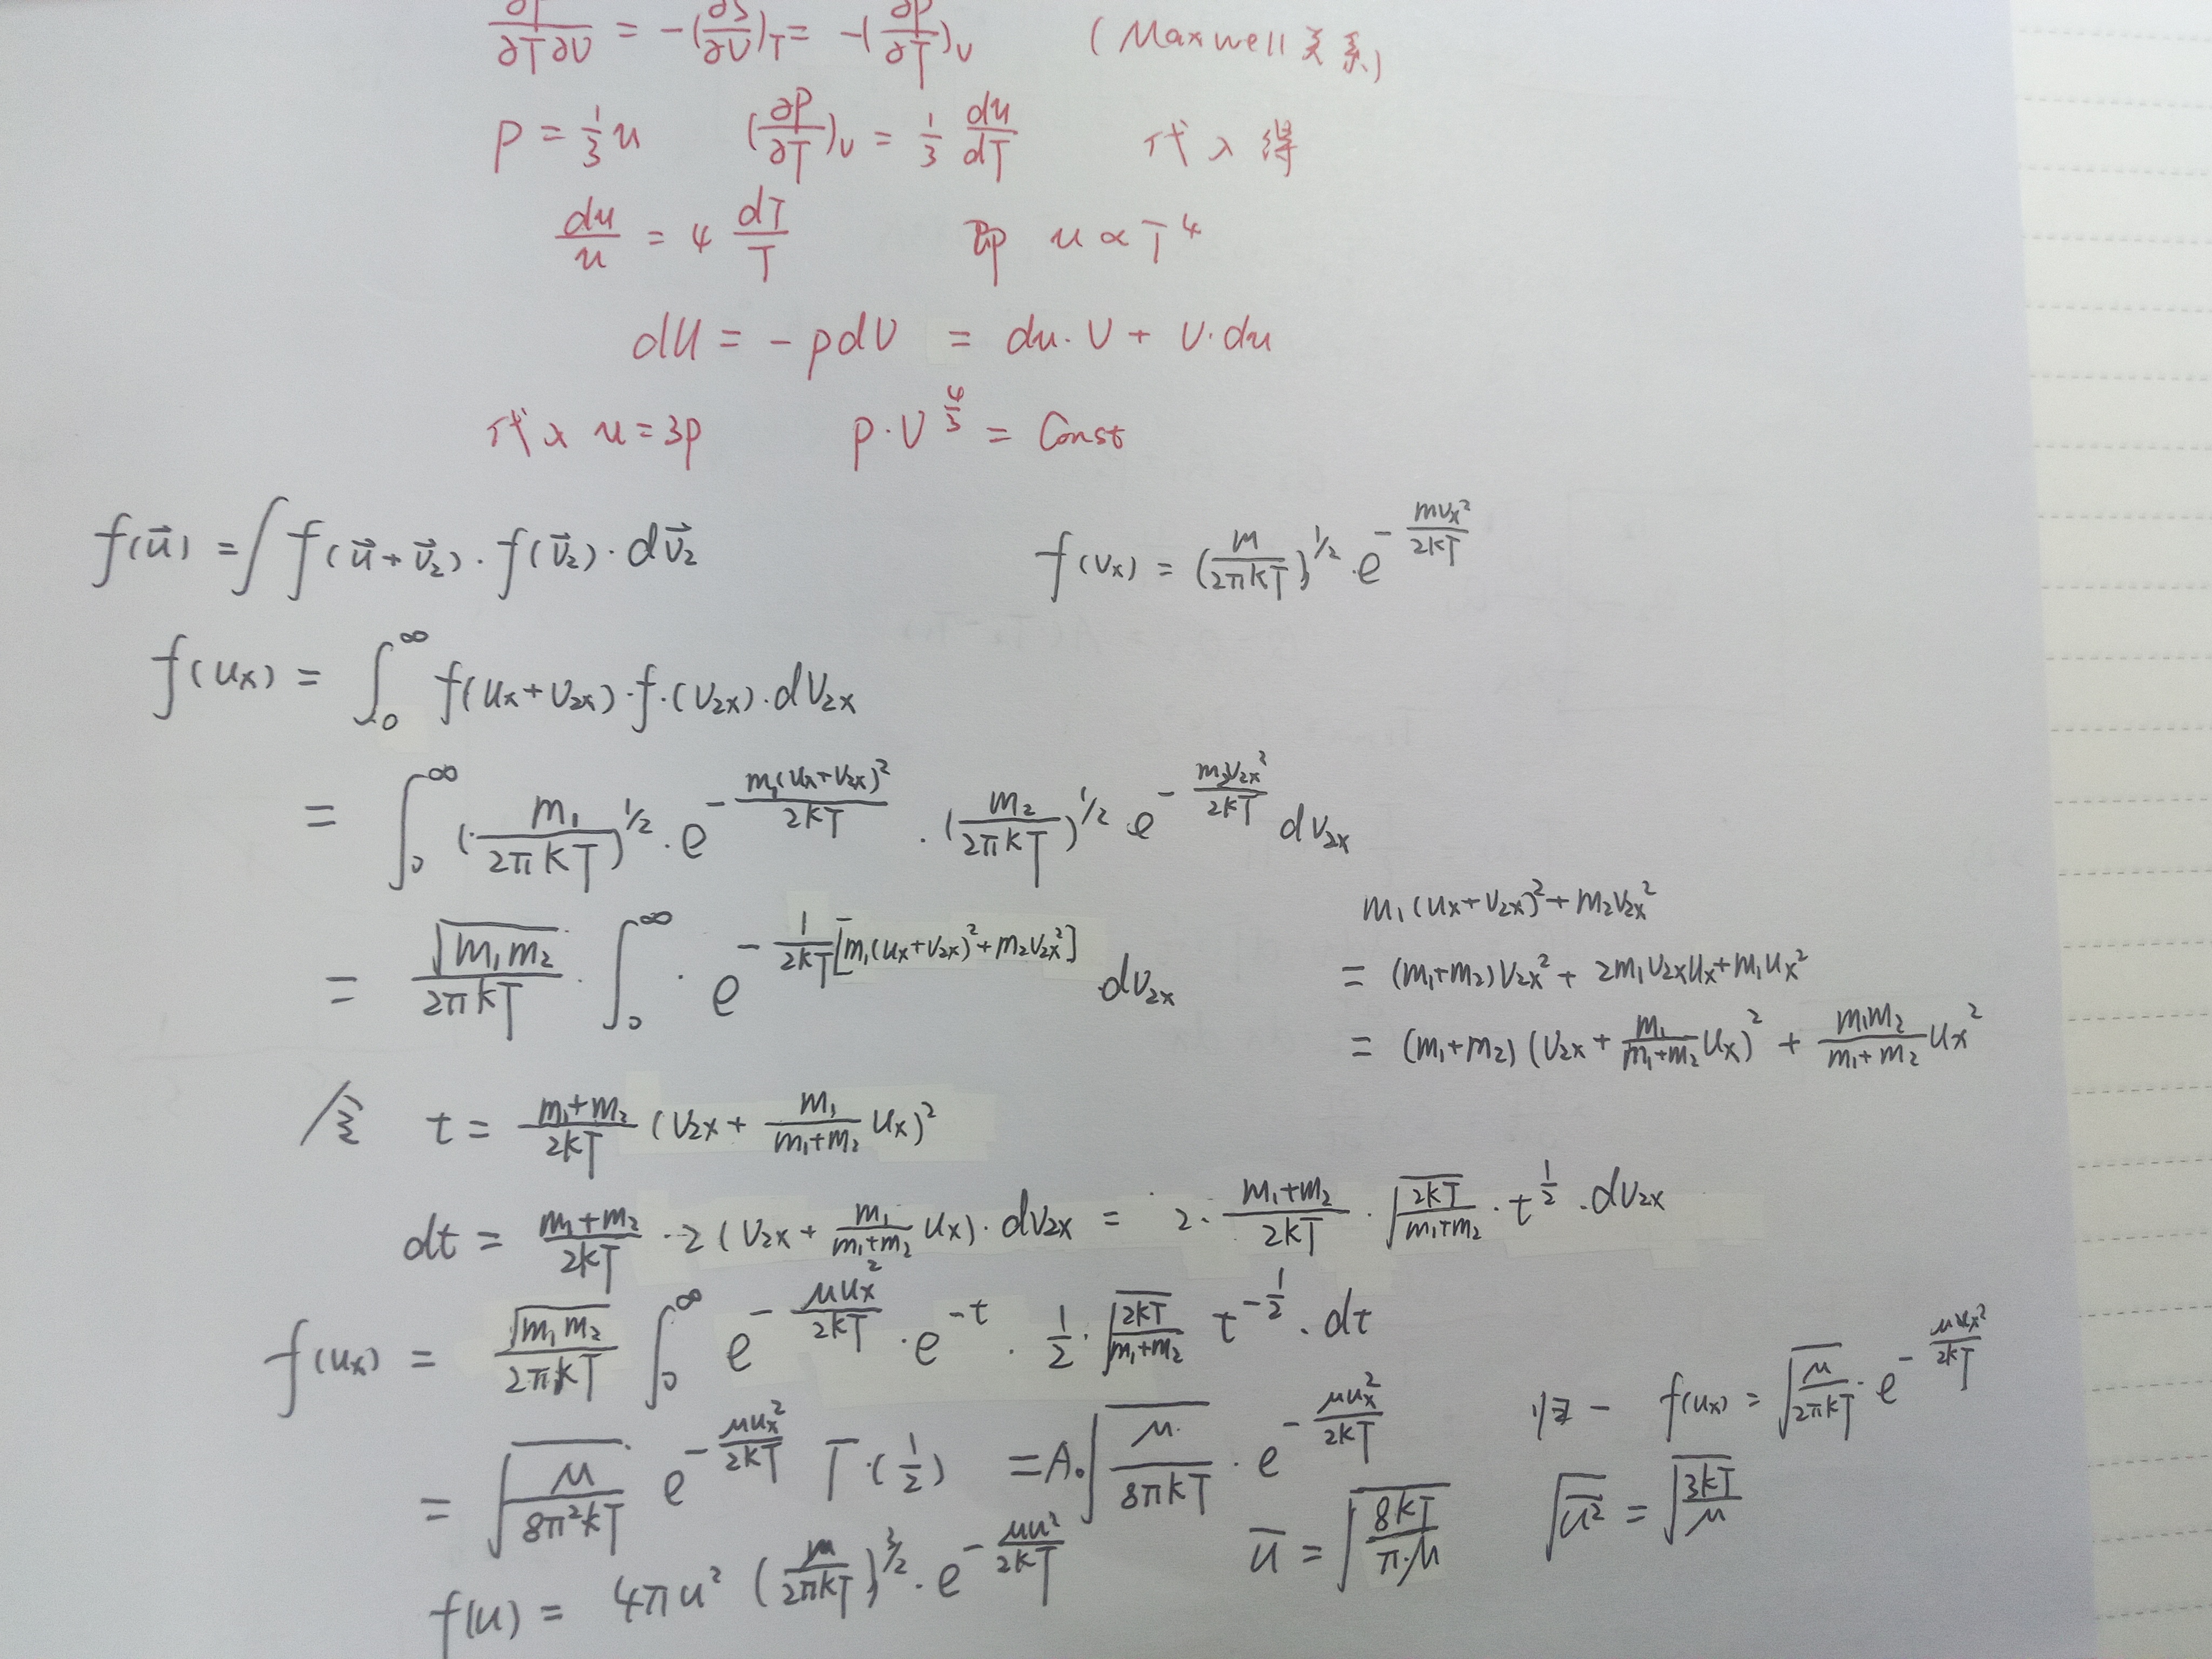 ∂F/∂T∂V = -(∂S/∂V)_T = -(∂P/∂T)_V (Maxwell关系)
P = 1/3 u (∂P/∂T)_V = 1/3 du/dT 代入得
du/u = 4 dT/T 即 u ∝ T^4
dU = -pdV = du·V + V·du
代入 u=3p p·V^(4/3) = Const
f(u⃗) = ∫ f(u⃗+v⃗₂)·f(v⃗₂)·dv⃗₂ f(vₓ) = (m/2πkT)^(1/2)·e^(-mvₓ²/2kT)
f(uₓ) = ∫₀^∞ f(uₓ+v₂ₓ)·f·(v₂ₓ)·dv₂ₓ
= ∫₀^∞ (m₁/2πkT)^(1/2)·e^(-m₁(uₓ+v₂ₓ)²/2kT)·(m₂/2πkT)^(1/2)·e^(-m₂v₂ₓ²/2kT) dv₂ₓ
= √(m₁m₂)/2πkT·∫₀^∞·e^(-1/2kT[m₁(uₓ+v₂ₓ)²+m₂v₂ₓ²])·dv₂ₓ
m₁(uₓ+v₂ₓ)²+m₂v₂ₓ²
= (m₁+m₂)v₂ₓ²+2m₁v₂ₓuₓ+m₁uₓ²
= (m₁+m₂)(v₂ₓ+m₁/(m₁+m₂)uₓ)²+m₁m₂/(m₁+m₂)uₓ²
令 t = (m₁+m₂)/2kT (v₂ₓ+m₁/(m₁+m₂)uₓ)²
dt = (m₁+m₂)/2kT·2(v₂ₓ+m₁/(m₁+m₂)uₓ)·dv₂ₓ = 2·(m₁+m₂)/2kT·√(2kT/(m₁+m₂))·t^(1/2)·dv₂ₓ
f(uₓ) = √(m₁m₂)/2πkT ∫₀^∞ e^(-μuₓ²/2kT)·e^(-t)·1/2·√(2kT/(m₁+m₂)) t^(-1/2)·dt
= √(μ/8π²kT) e^(-μuₓ²/2kT) Γ·(1/2) = A·√(μ/8πkT)·e^(-μuₓ²/2kT) 归一 f(uₓ) = √(μ/2πkT)·e^(-μuₓ²/2kT)
f(u) = 4πu² (μ/2πkT)^(3/2)·e^(-μu²/2kT) ū = √(8kT/π·μ) √(u²‾) = √(3kT/μ)